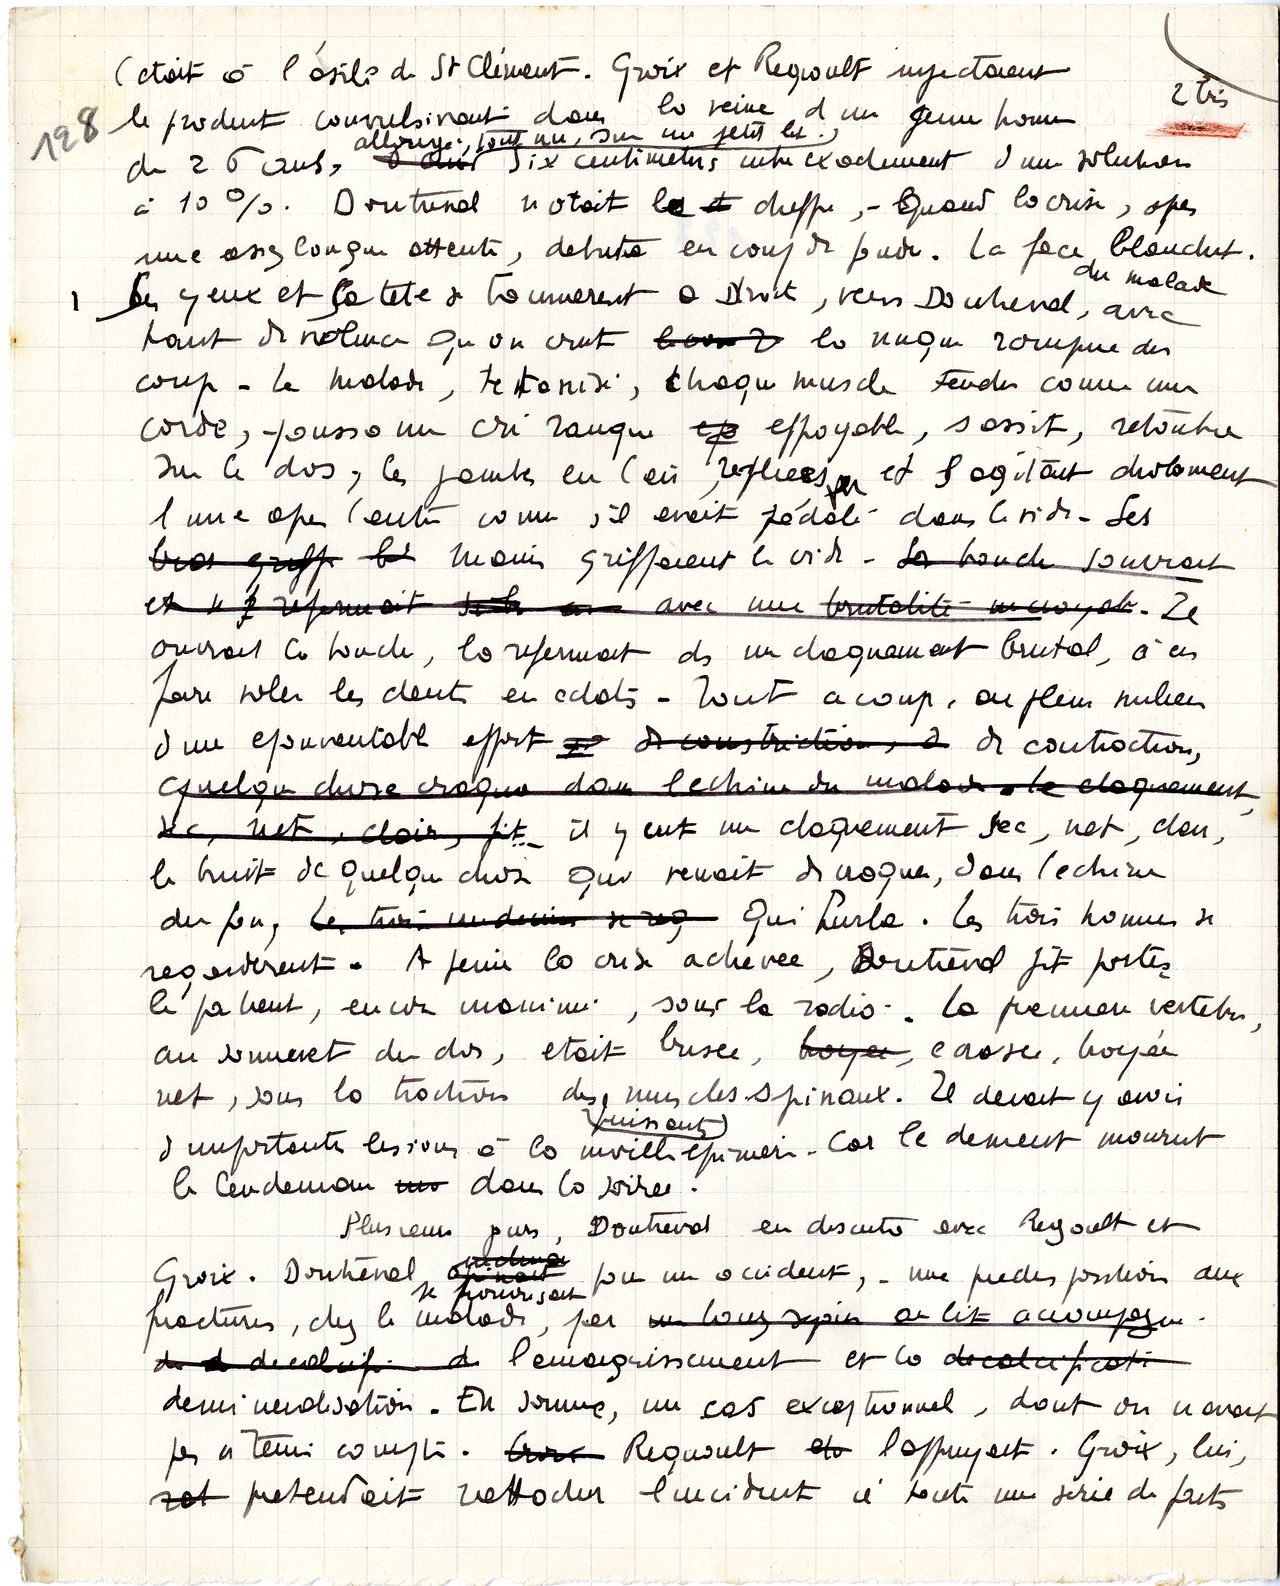 2 bis
128
C'était à l'asile de St Clément. Groix et Regnoult injectaient
le produit convulsivant dans la veine d'un jeune homme
allongé, tout nu, sur un petit lit,
de 26 ans, six centimètres cubes exactement d'une solution
à 10 %. Doutreval notait le chiffre, - Quand la crise, après
une assez longue attente, débuta en coup de foudre. La face blanchit.
du malade
1 Les yeux et la tête se tournèrent à droite, vers Doutreval, avec
tant de violence qu'on crut la nuque rompue du
coup - le malade, tétanisé, chaque muscle tendu comme une
corde, poussa un cri rauque effroyable, s'assit, retomba
sur le dos, les jambes en l'air, repliées, et s'agitant drôlement
l'une après l'autre comme s'il avait pédalé dans le vide - Ses
bras griff les mains griffaient le vide - Sa bouche s'ouvrait
et se refermait avec une brutalité incroyable. Il
ouvrait la bouche, la refermait ds un claquement brutal, à en
faire voler les dents en éclats - Tout à coup, au plein milieu
d'un épouvantable effort de constriction, d de contraction,
quelque chose craqua dans l'échine du malade. Le claquement,
sec, net, clair, fit il y eut un claquement sec, net, clair,
le bruit de quelque chose qui venait de craquer, dans l'échine
du fou, Les trois médecins se reg qui hurla. Les trois hommes se
regardèrent. A peine la crise achevée, Doutreval fit porter
le patient, encore inanimé, sous la radio. La première vertèbre,
au sommet du dos, était brisée, broyée, écrasée, broyée
net, sous la traction des muscles spinaux. Il devait y avoir
(puissants)
d'importantes lésions à la moelle épinière - Car le dément mourut
le lendemain dans la soirée.
Plusieurs jours, Doutreval en discuta avec Regnoult et
Groix. Doutreval opinait pour un accident, - une prédisposition aux
se prononçait
fractures, chez le malade, par un long séjour au lit accompagné
de décalcif. de l'amaigrissement et la décalcificati
déminéralisation. En somme, un cas exceptionnel, dont on n'avait
pas à tenir compte. Groix Regnoult l'appuyait. Groix, lui,
rat prétendait rattacher l'incident à toute une série de faits